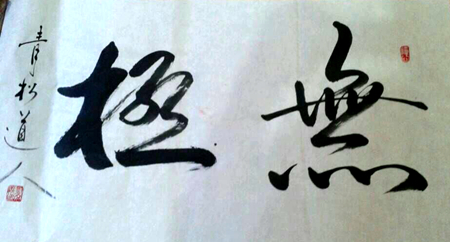 無極
青松道人